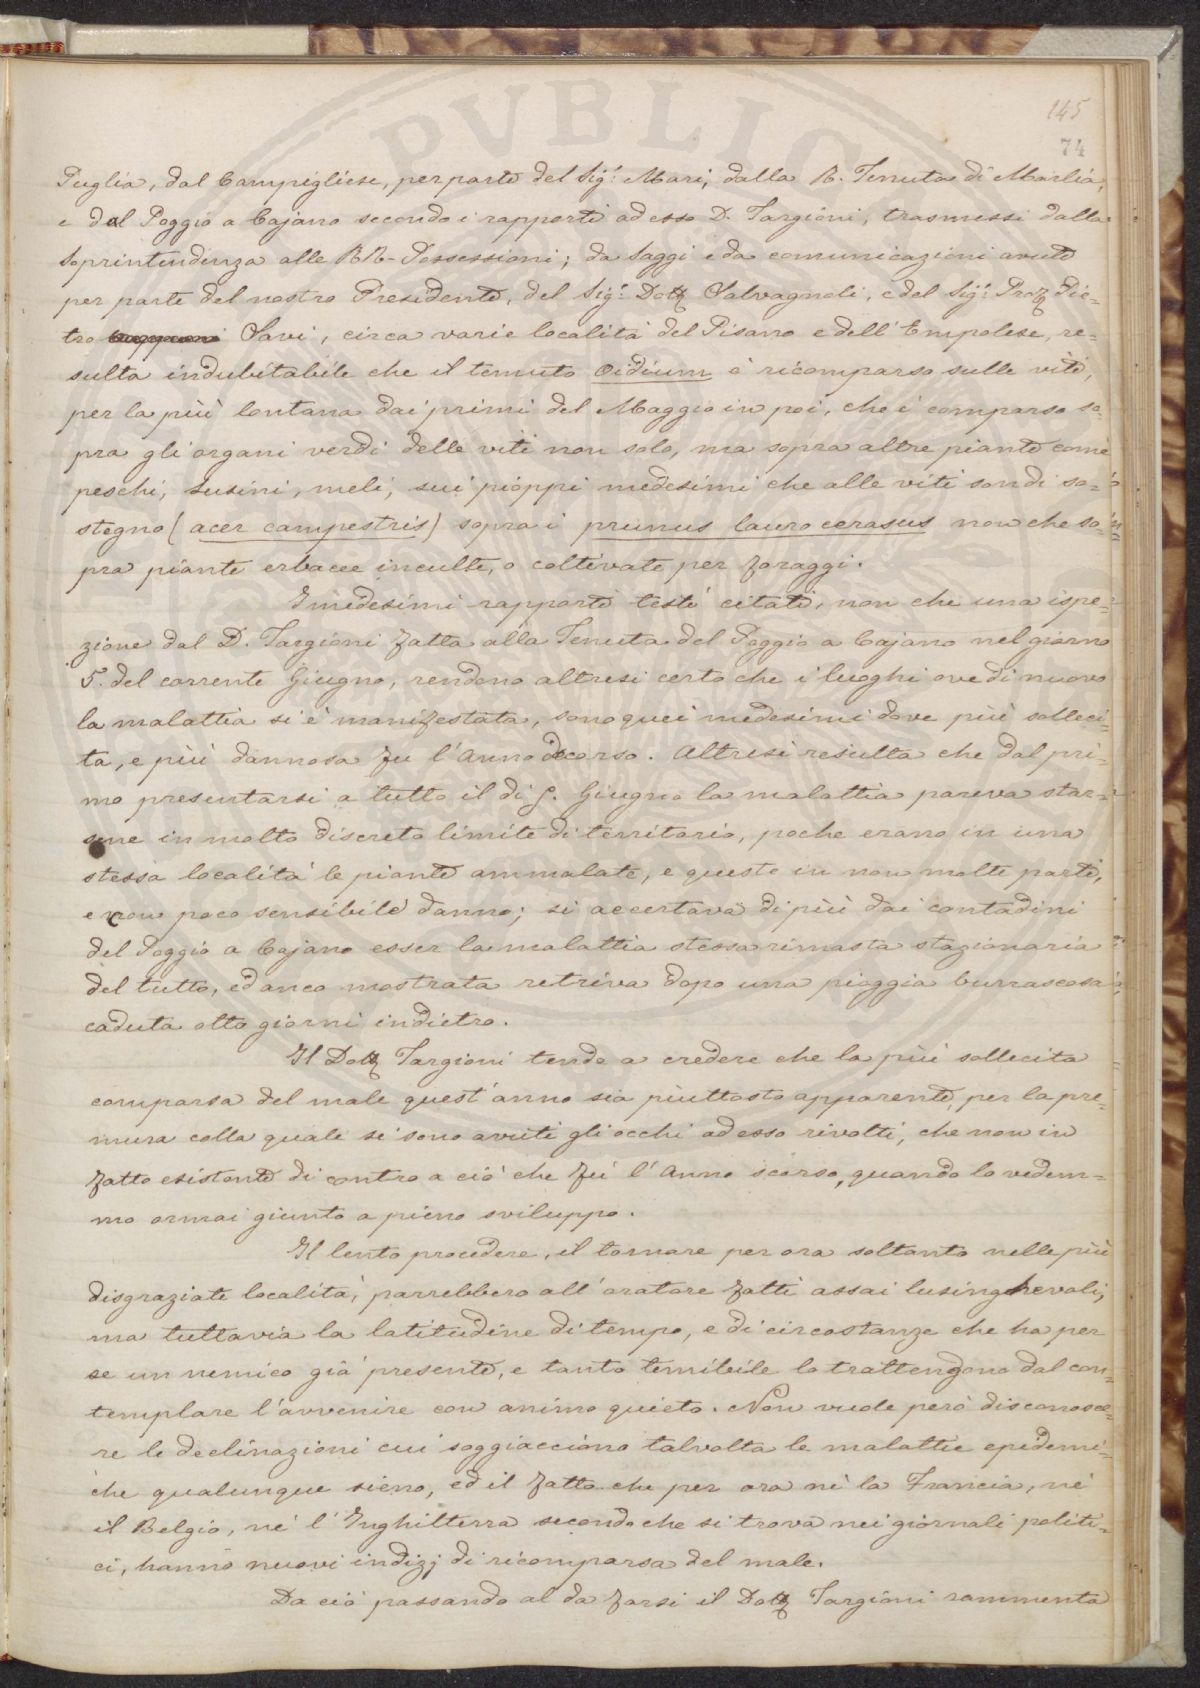 PVBLIC
145
74
Puglia, dal Campigliese, per parte del Sig.r Mari, dalla R. Tenuta di Marlia,
e dal Poggio a Cajano secondo i rapporti ad esso D. Targioni, trasmessi dalla
Soprintendenza alle RR. Possessioni; da Saggi e da comunicazioni avute
per parte del nostro Presidente, del Sig.r Dott Salvagnoli, e del Sig.r Prof Pie-
tro Savi, circa varie località del Pisano e dell'Empolese, re-
sulta indubitabile che il temuto Oidium è ricomparso sulle viti,
per la più lontana dai primi del Maggio in poi, che è comparso so-
pra gli organi verdi delle viti non solo, ma sopra altre piante come
peschi, susini, meli, sui pioppi medesimi che alle viti son di so-
stegno (acer campestris) sopra i prunus lauro cerasus non che so-
pra piante erbacee inculte, o coltivate per foraggi.
I medesimi rapporti testè citati, non che una ispe-
zione dal D. Targioni fatta alla Tenuta del Poggio a Cajano nel giorno
5. del corrente Giugno, rendono altresi certo che i luoghi ove di nuovo
la malattia si è manifestata, sono quei medesimi dove più solleci-
ta, e più dannosa fu l'Anno decorso. Altresì resulta che dal pri-
mo presentarsi a tutto il dì 5. Giugno la malattia pareva star-
sene in molto discreto limite di territorio, poche erano in una
stessa località le piante ammalate, e queste in non molte parti,
e con poco sensibile danno; si accertava di più dai contadini
del Poggio a Cajano esser la malattia stessa rimasta stazionaria
del tutto, ed anco mostrata retriva dopo una pioggia burrascosa
caduta otto giorni indietro.
Il Dott Targioni tende a credere che la più sollecita
comparsa del male quest'anno sia piuttosto apparente, per la pre-
mura colla quale si sono avuti gli occhi ad esso rivolti, che non in
fatto esistente di contro a ciò che fù l'Anno scorso, quando lo vedem-
mo ormai giunto a pieno sviluppo.
Il lento procedere, il tornare per ora soltanto nelle più
disgraziate località, parrebbero all'oratore fatti assai lusinghevoli,
ma tuttavia la latitudine di tempo, e di circostanze che ha per
se un nemico già presente, e tanto temibile lo trattengono dal con-
templare l'avvenire con animo quieto. Non vuole però disconosce-
re le declinazioni cui soggiacciono talvolta le malattie epidemi-
che qualunque sieno, ed il fatto che per ora nè la Francia, nè
il Belgio, nè l'Inghilterra secondo che si trova nei giornali politi-
ci, hanno nuovi indizj di ricomparsa del male.
Da ciò passando al da farsi il Dott Targioni rammenta